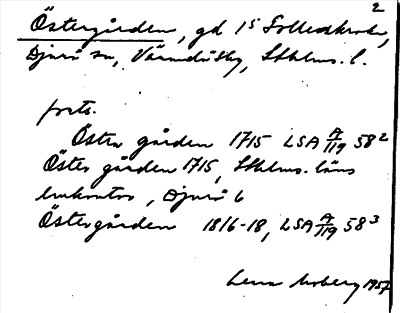 2
Östergården, gd 15 Sollenkroka,
Djurö sn, Värmdö skg, Sthlms. l.
forts.
Öster gården 1715 LSA A/119 58²
Öster gården 1715, Sthlms. läns
lmkontor, Djurö 6
Östergården 1816-18, LSA A/119 58³
Lena Moberg 1957